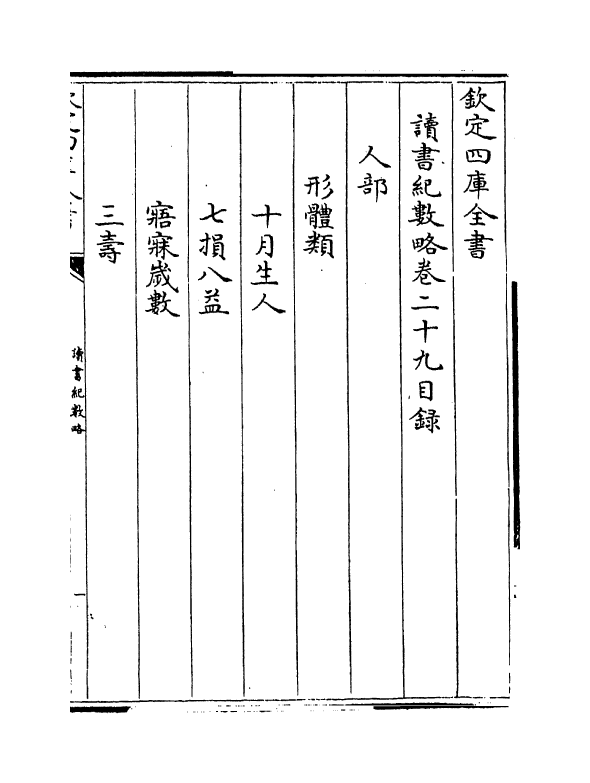 欽定四庫全書
讀書紀數略卷二十九目録
人部
形體類
十月生人
七損八益
寤寐歲數
三壽
讀書紀數略
一